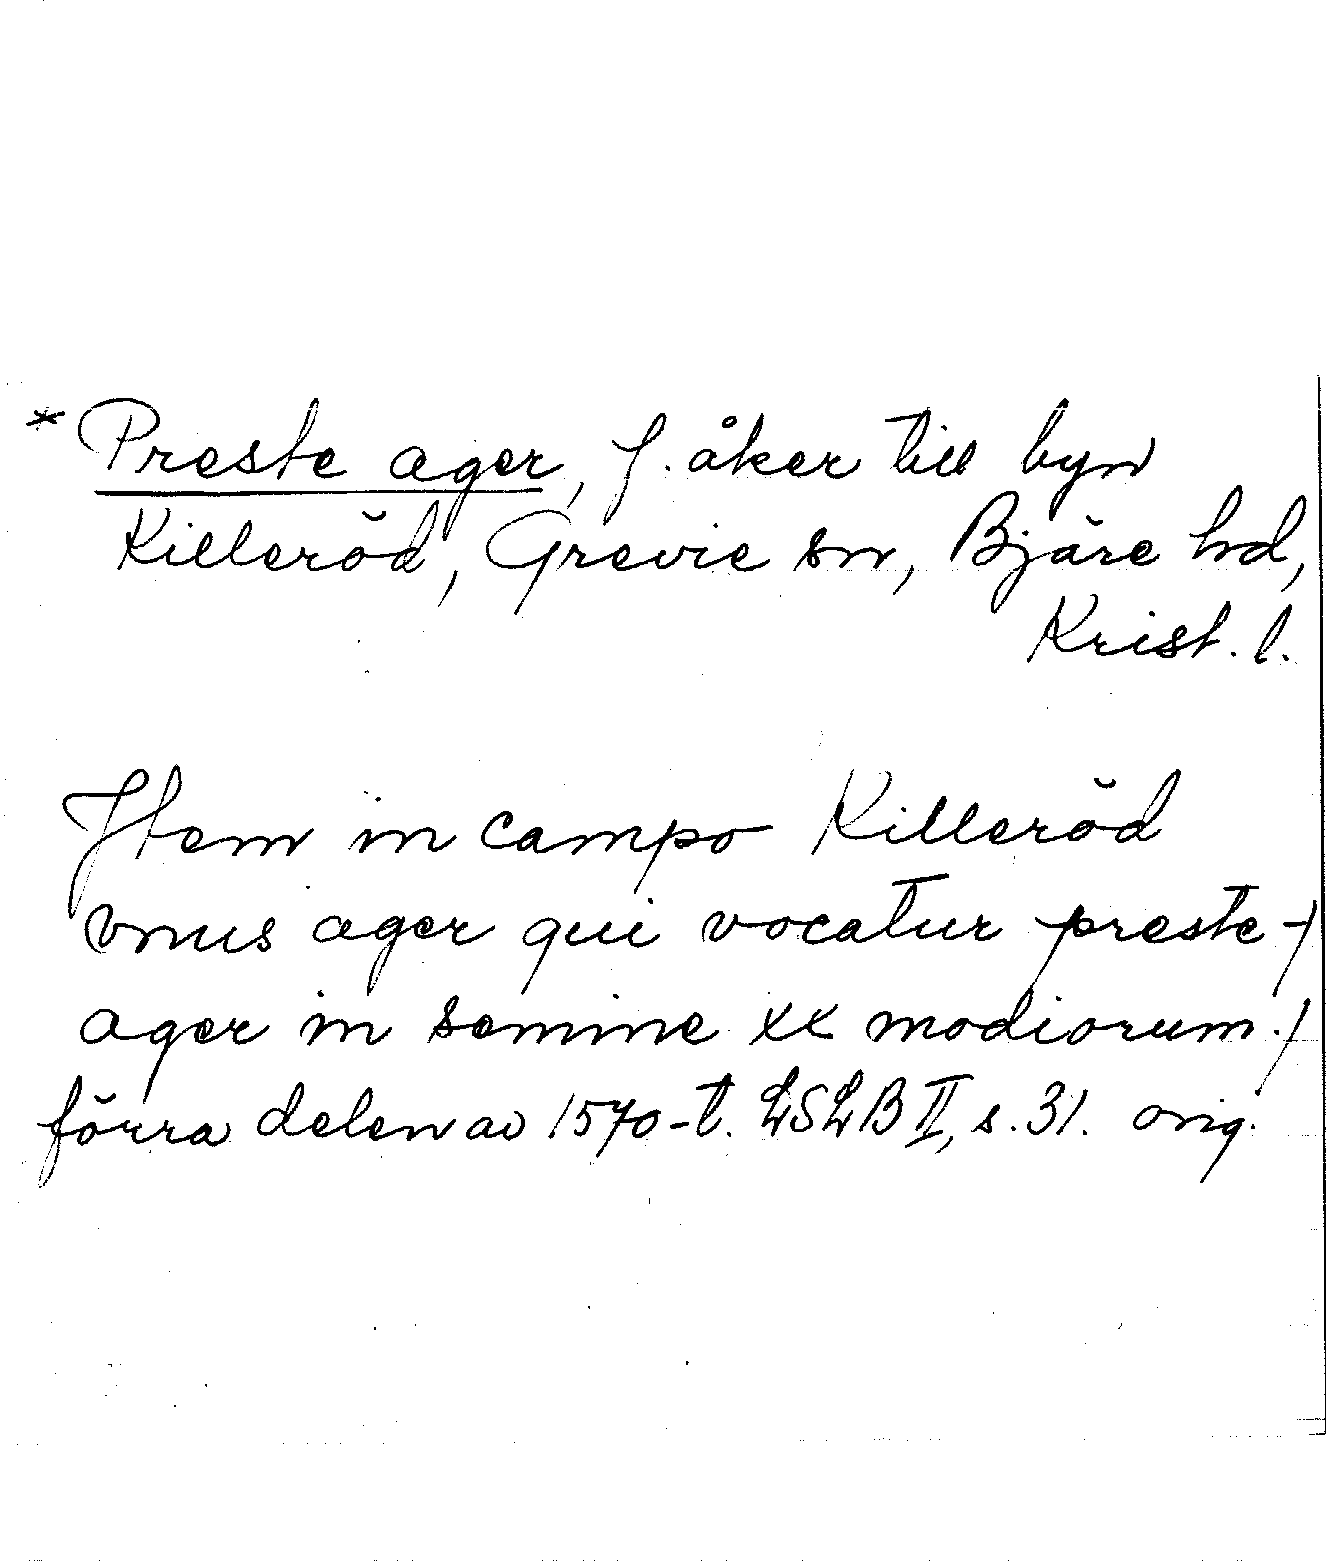 * Preste ager, f. åker till byn
Killeröd, Grevie sn, Bjäre hd,
Krist. l.
Item in campo Killeröd
vnus ager qui vocatur preste-/
ager in semine xx modiorum./
förra delen av 1570-t. LSLB II, s. 31. orig.